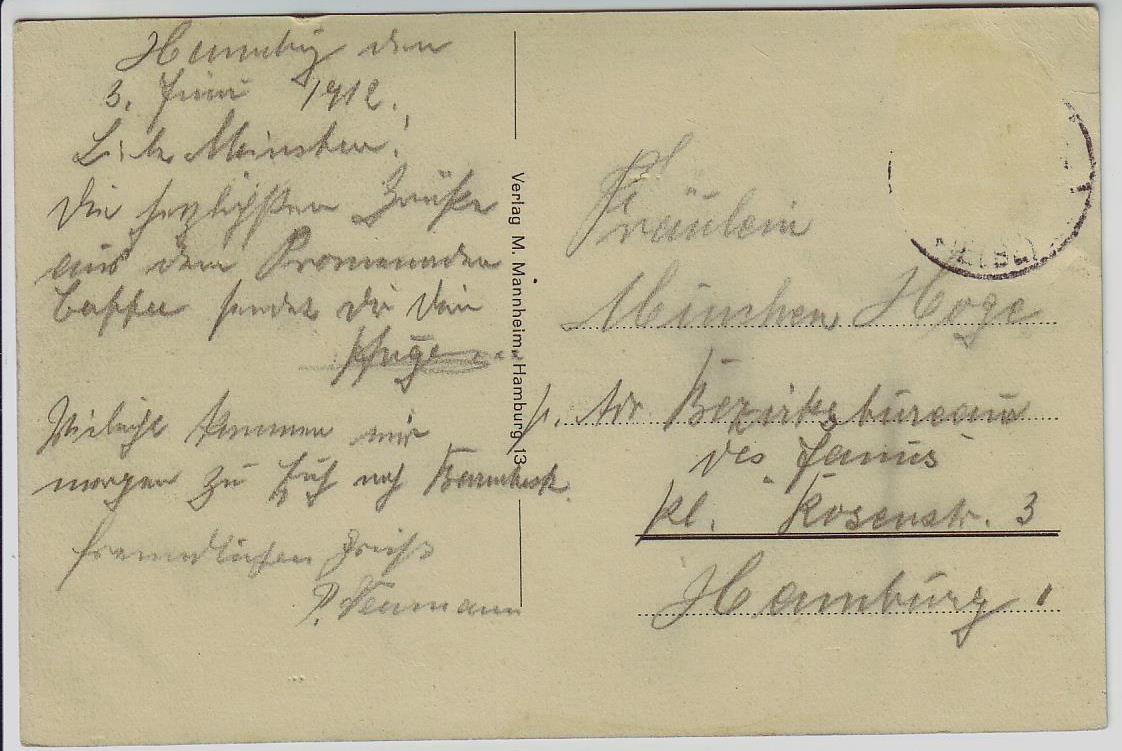 Hamburg den
3. Juni 1912.
Liebe Minchen!
Die herzlichsten Grüße
aus dem Promenaden
Caffee sendet Dir Dein
kommen wir
morgen zu Euch nach Barmbeck.
freundlichen Gruß
P. Neumann
Verlag M. Mannheim, Hamburg 13
Fräulein
Minchen Hoge
p. Adr Bezirksbureau
des Janus
kl. Rosenstr. 3
Hamburg 1